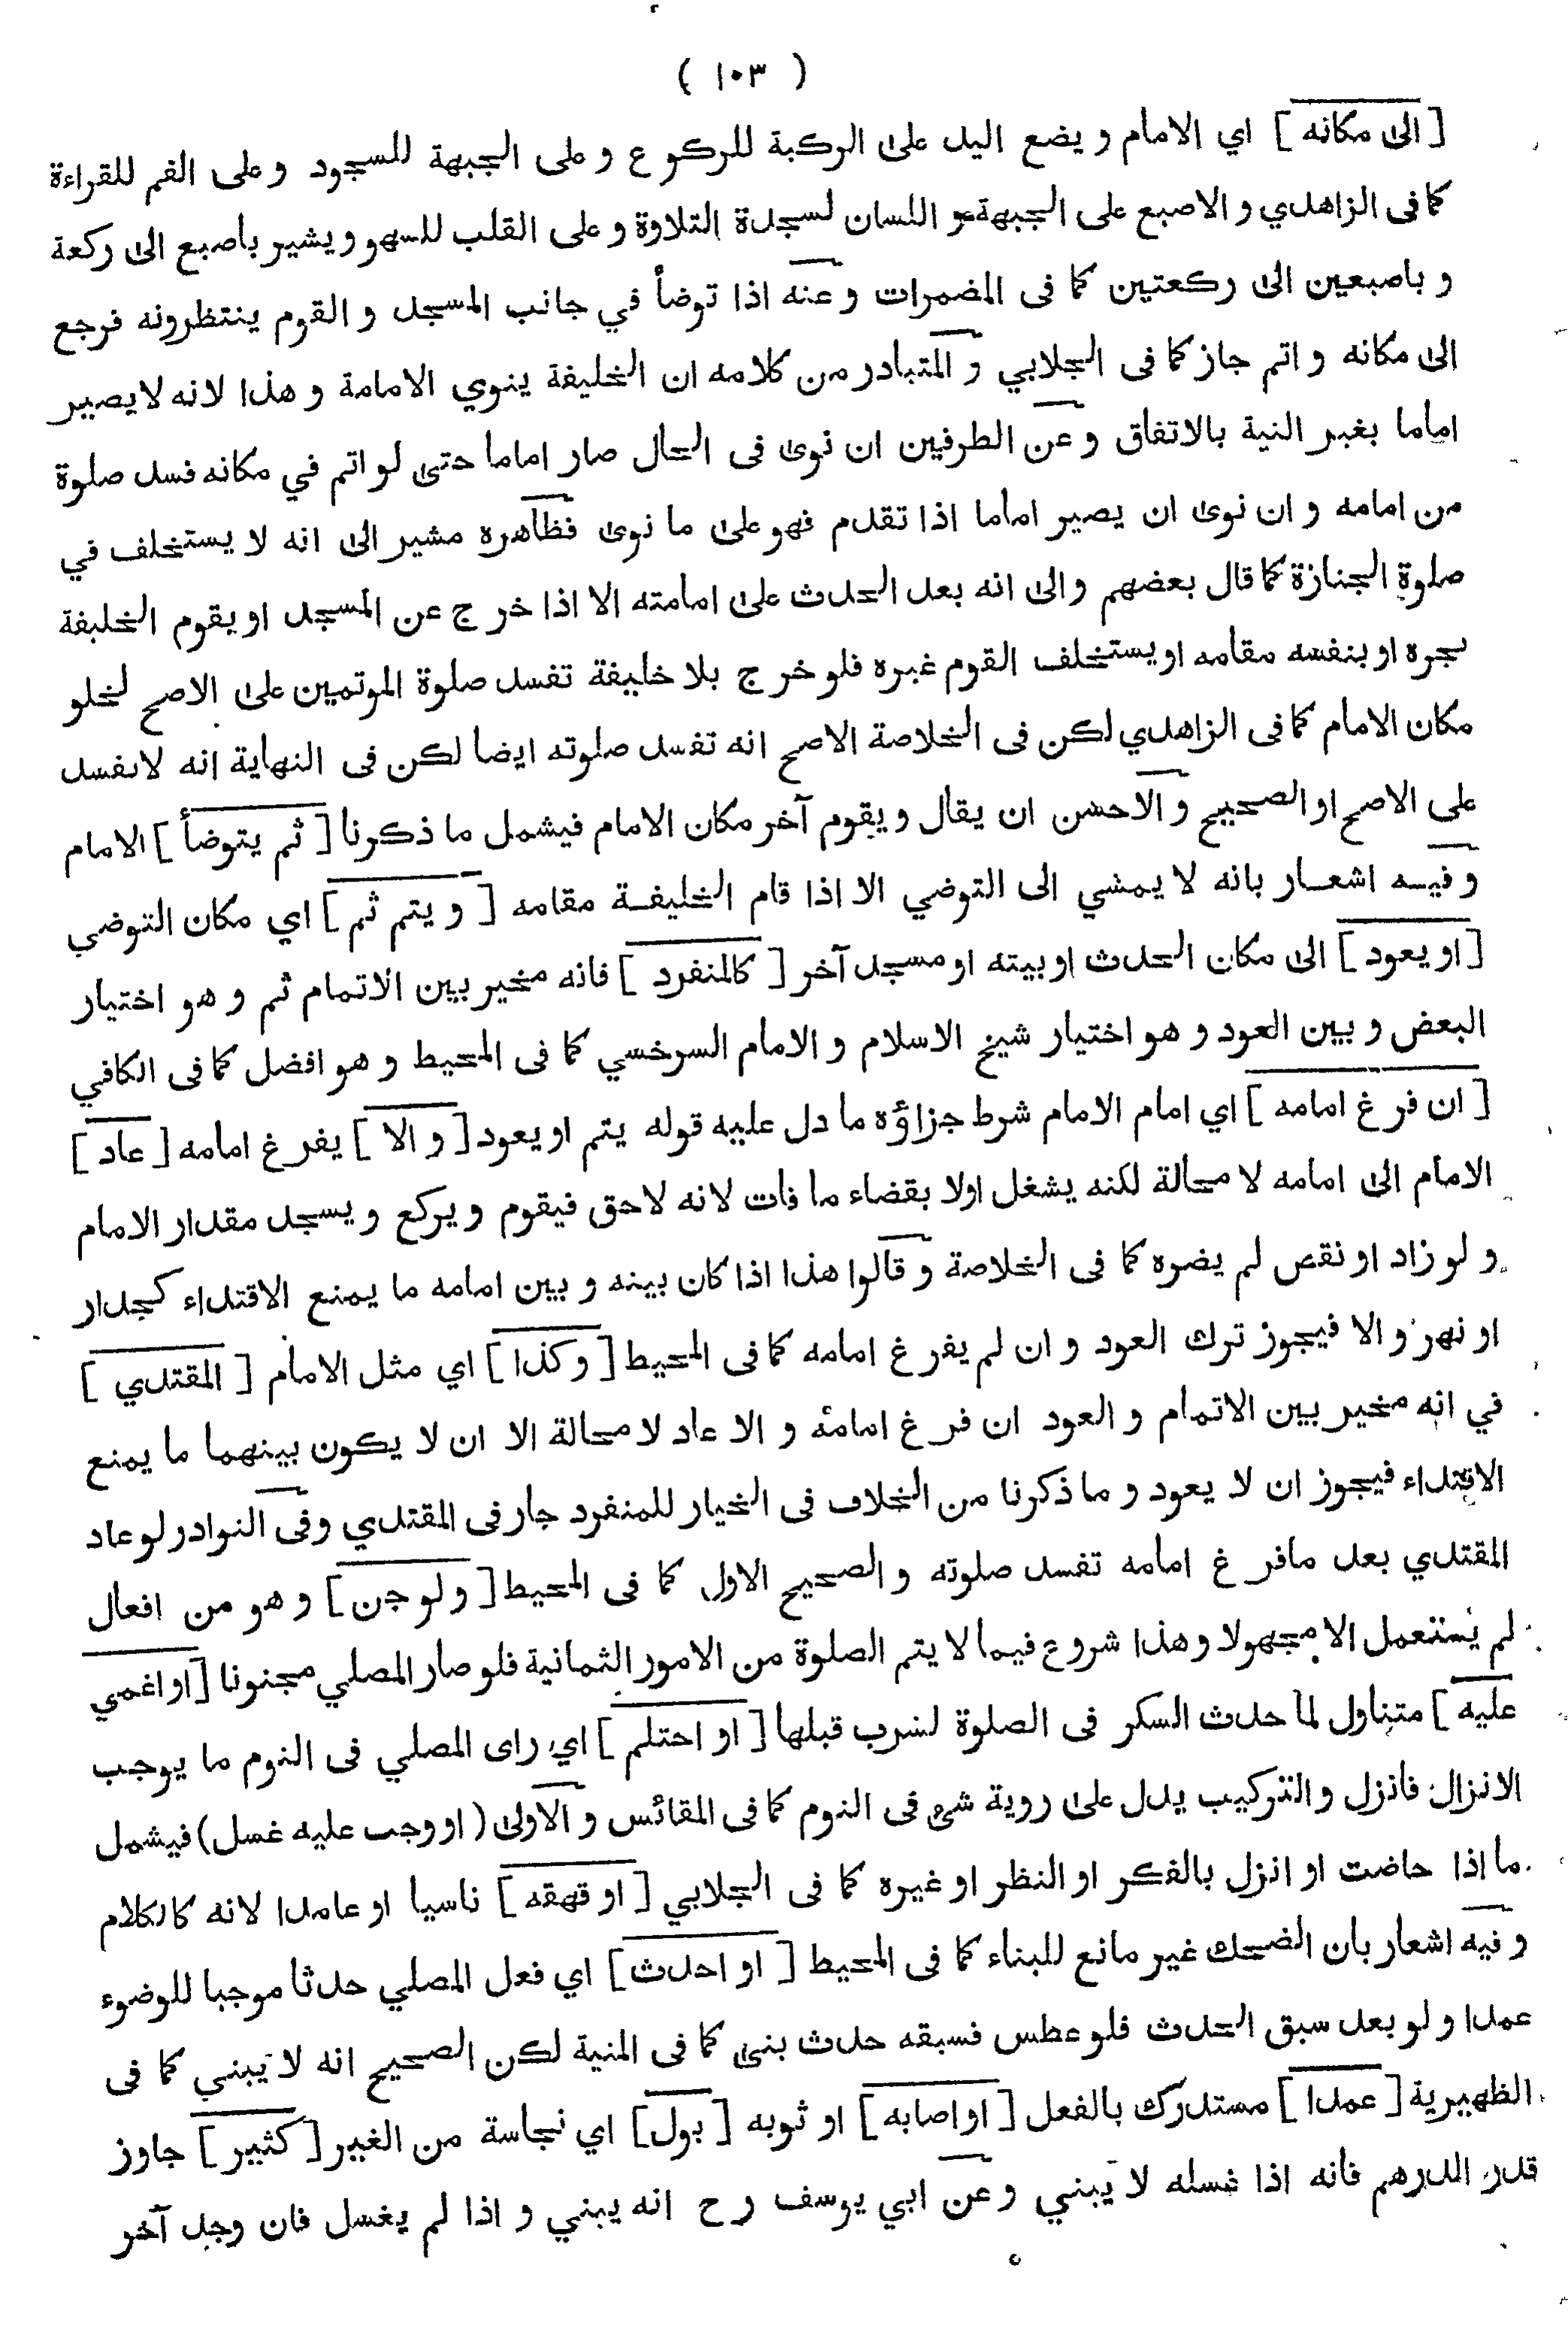 ( ١٠٣ )
[ الى مكانه ] اي الامام و يضع اليد على الركبة للركوع و على الجبهة للسجود و على الفم للقراءة
كما فى الزاهدي و الاصبع على الجبهة و اللسان لسجدة التلاوة و على القلب للسهو و يشير باصبع الى ركعة
و باصبعين الى ركعتين كما فى المضمرات و عنه اذا توضأ في جانب المسجد و القوم ينتظرونه فرجع
الى مكانه و اتم جاز كما فى الجلابي و المتبادر من كلامه ان الخليفة ينوي الامامة و هذا لانه لا يصير
اماما بغير النية بالاتفاق و عن الطرفين ان نوى فى الحال صار اماما حتى لو اتم في مكانه فسد صلوة
من امامه و ان نوى ان يصير اماما اذا تقدم فهو على ما نوى فظاهره مشير الى انه لا يستخلف في
صلوة الجنازة كما قال بعضهم و الى انه بعد الحدث على امامته الا اذا خرج عن المسجد او يقوم الخليفة
بجره او بنفسه مقامه او يستخلف القوم غيره فلو خرج بلا خليفة تفسد صلوة الموتمين على الاصح لخلو
مكان الامام كما فى الزاهدي لكن فى الخلاصة الاصح انه تفسد صلوته ايضا لكن فى النهاية انه لا تفسد
على الاصح او الصحيح و الاحسن ان يقال و يقوم آخر مكان الامام فيشمل ما ذكرنا [ ثم يتوضأ ] الامام
و فيه اشعار بانه لا يمشي الى التوضي الا اذا قام الخليفة مقامه [ و يتم ثم ] اي مكان التوضي
[ او يعود ] الى مكان الحدث او بيته او مسجد آخر [ كالمنفرد ] فانه مخير بين الاتمام ثم و هو اختيار
البعض و بين العود و هو اختيار شيخ الاسلام و الامام السرخسي كما فى المحيط و هو افضل كما فى الكافي
[ ان فرغ امامه ] اي امام الامام شرط جزاؤه ما دل عليه قوله يتم او يعود [ و الا ] يفرغ امامه [ عاد ]
الامام الى امامه لا محالة لكنه يشغل اولا بقضاء ما فات لانه لاحق فيقوم و يركع و يسجد مقدار الامام
و لو زاد او نقص لم يضره كما فى الخلاصة و قالوا هذا اذا كان بينه و بين امامه ما يمنع الاقتداء كجدار
او نهر و الا فيجوز ترك العود و ان لم يفرغ امامه كما فى المحيط [ و كذا ] اي مثل الامام [ المقتدي ]
في انه مخير بين الاتمام و العود ان فرغ امامه و الا عاد لا محالة الا ان لا يكون بينهما ما يمنع
الاقتداء فيجوز ان لا يعود و ما ذكرنا من الخلاف فى الخيار للمنفرد جار فى المقتدي و فى النوادر لو عاد
المقتدي بعد ما فرغ امامه تفسد صلوته و الصحيح الاول كما فى المحيط [ و لو جن ] و هو من افعال
لم يستعمل الا مجهولا و هذا شروع فيما لا يتم الصلوة من الامور الثمانية فلو صار المصلي مجنونا [ او اغمي
عليه ] متناول لما حدث السكر فى الصلوة لشرب قبلها [ او احتلم ] اي راى المصلي فى النوم ما يوجب
الانزال فانزل و التركيب يدل على روية شئ فى النوم كما فى المقائس و الاولى ( او وجب عليه غسل ) فيشمل
ما اذا حاضت او انزل بالفكر او النظر او غيره كما فى الجلابي [ او قهقه ] ناسيا او عامدا لانه كالكلام
و فيه اشعار بان الضحك غير مانع للبناء كما فى المحيط [ او احدث ] اي فعل المصلي حدثا موجبا للوضوء
عمدا و لو بعد سبق الحدث فلو عطس فسبقه حدث بنى كما فى المنية لكن الصحيح انه لا يبني كما فى
الظهيرية [ عمدا ] مستدرك بالفعل [ او اصابه ] او ثوبه [ بول ] اي نجاسة من الغير [ كثير ] جاوز
قدر الدرهم فانه اذا غسله لا يبني و عن ابي يوسف رح انه يبني و اذا لم يغسل فان وجد آخر